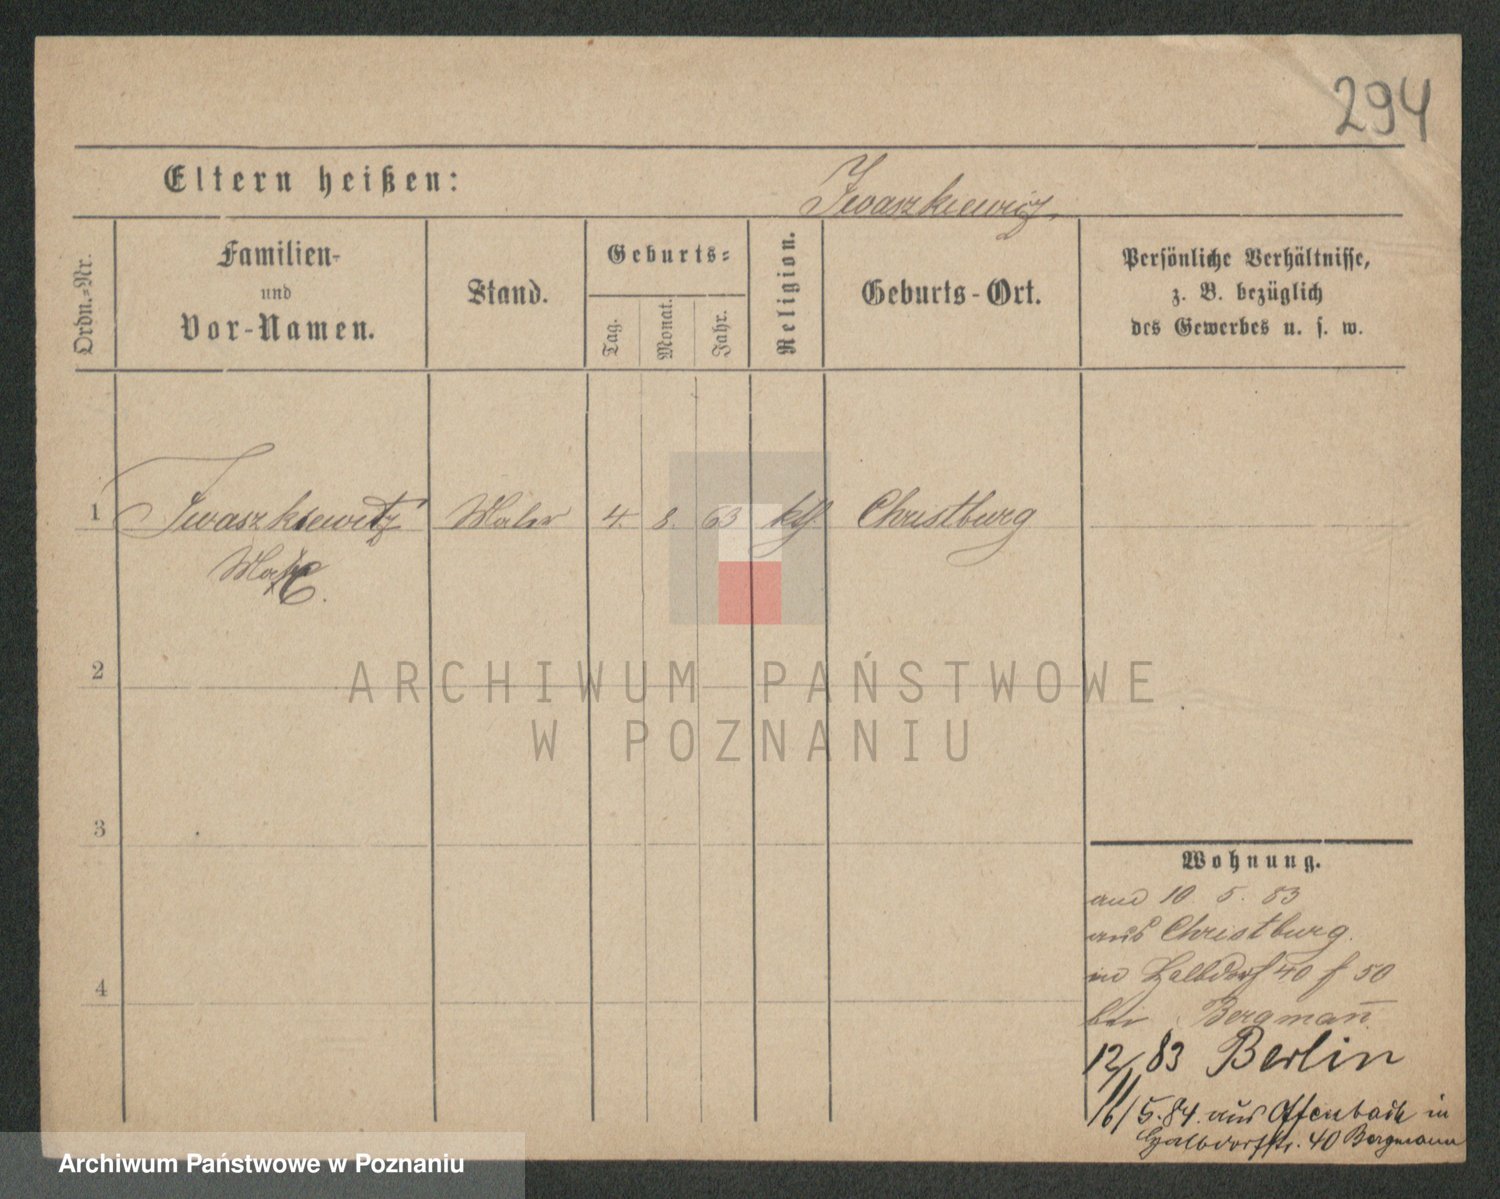 294
Eltern heißen:
Iwaszkiewicz.
Ordn.-Nr.
Familien-
und
Vor-Namen.
Stand.
Geburts-
Tag.
Monat.
Jahr.
Religion.
Geburts-Ort.
Persönliche Verhältnisse,
z. B. bezüglich
des Gewerbes u. s. w.
1 Iwaszkiewitz Maler 4. 8. 63 kth. Christburg
2
3
4
Wohnung.
10 5. 83
aus Christburg.
in Halbdorf 40 f 50
bei Bergman̄
12/11 83 Berlin
16/5.84. aus Offenbach in
Halbdorfstr. 40 Bergmann
ARCHIWUM PAŃSTWOWE
W POZNANIU
Archiwum Państwowe w Poznaniu